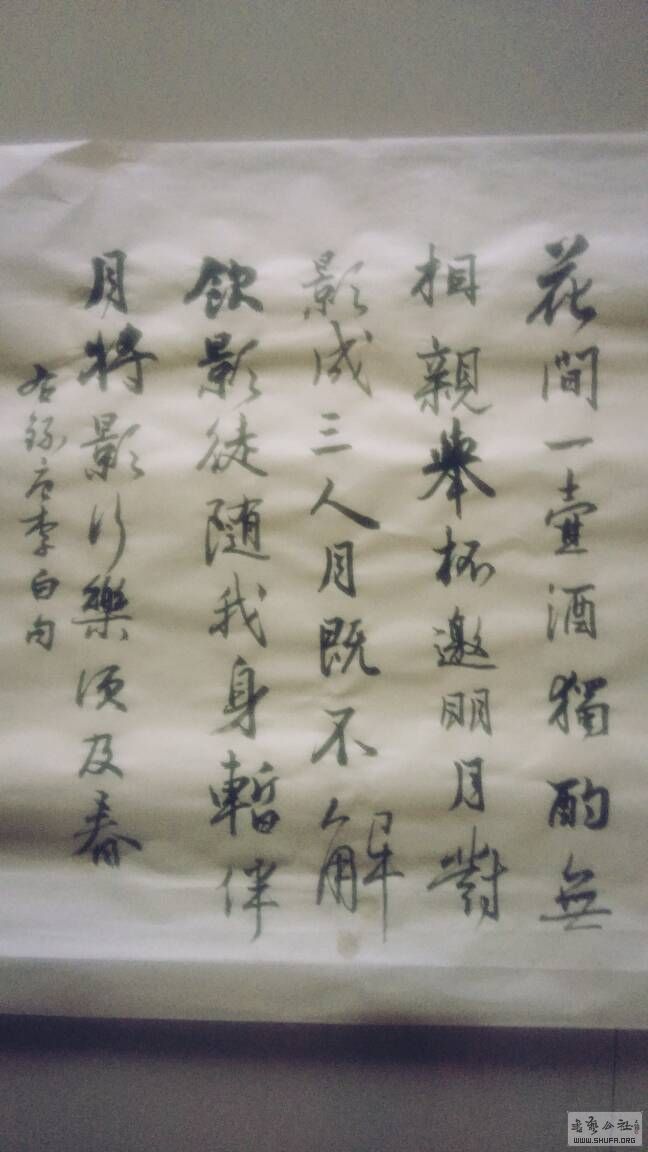 花間一壺酒獨酌無
相親舉杯邀明月對
影成三人月既不解
飲影徒隨我身暫伴
月將影行樂須及春
右録唐李白句
書藝公社
WWW.SHUFA.ORG